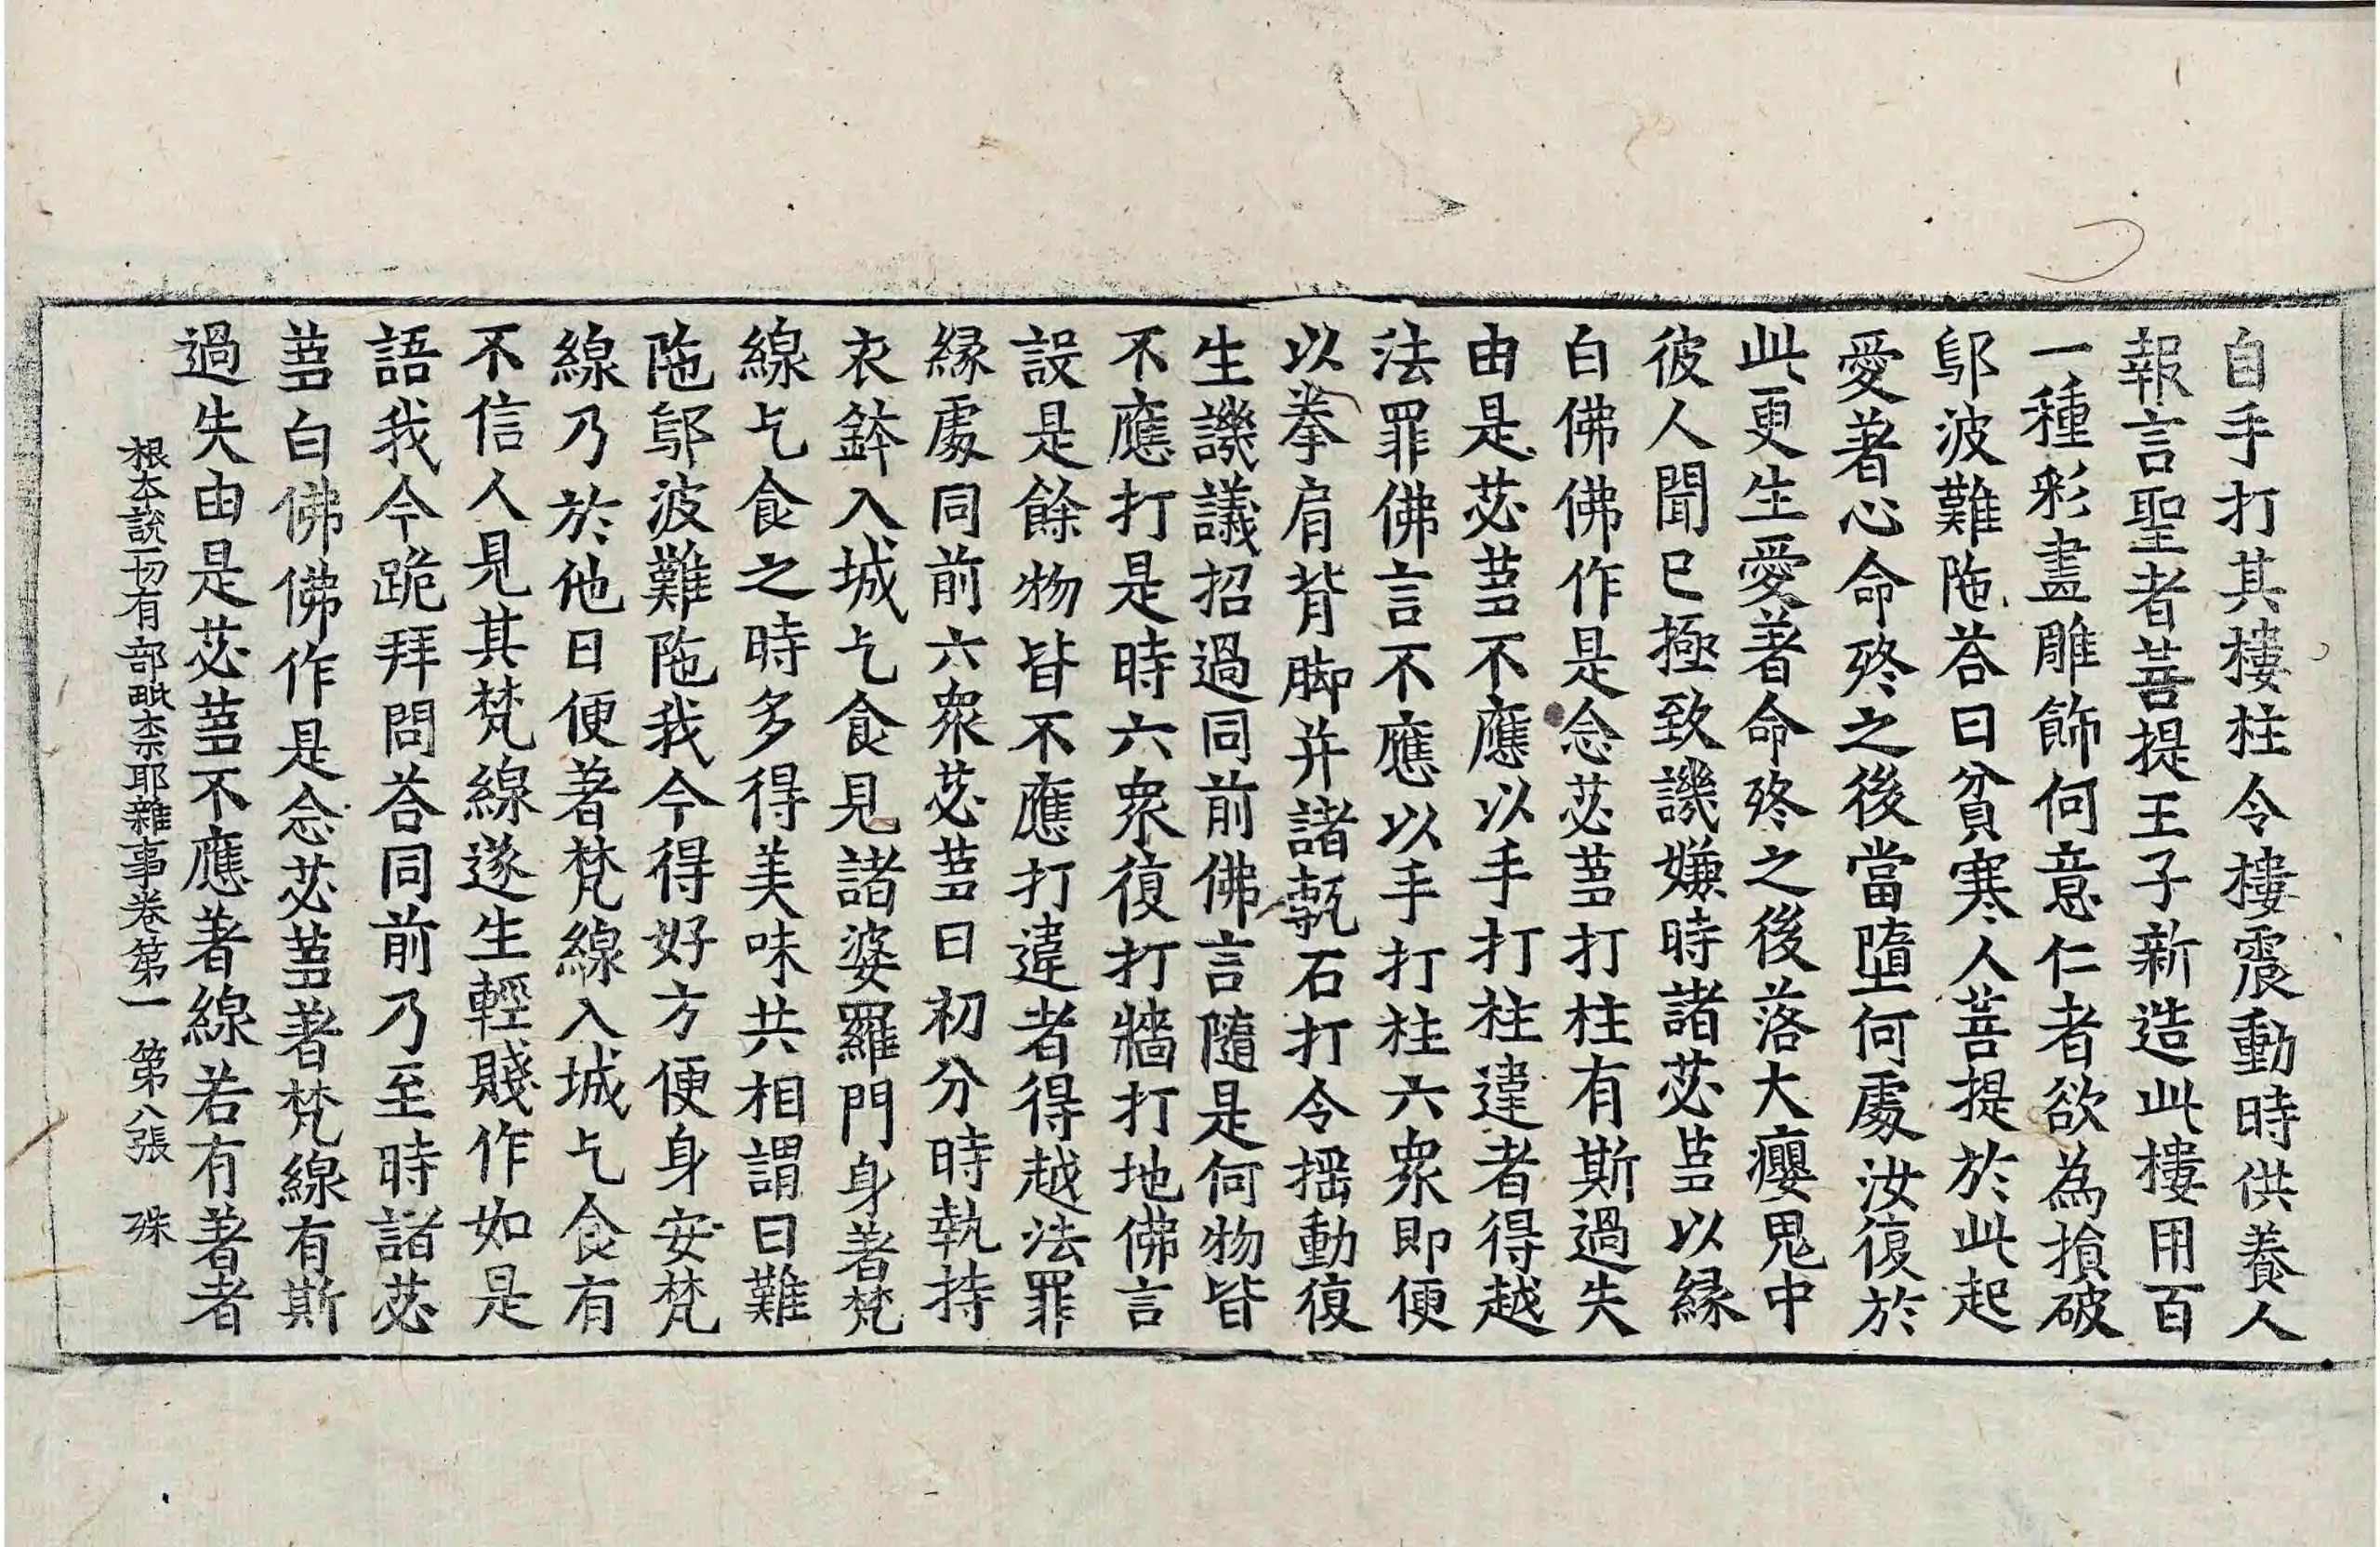 自手打其樓柱令樓震動時供養人
報言聖者菩提王子新造此樓用百
一種彩畫雕飾何意仁者欲為損破
鄔波難陁荅曰貧寒人菩提於此起
愛著心命終之後當墮何處汝復於
此更生愛著命終之後落大癭鬼中
彼人聞已極致譏嫌時諸苾蒭以緣
白佛佛作是念苾蒭打柱有斯過失
由是苾蒭不應以手打柱違者得越
法罪佛言不應以手打柱六衆即便
以拳肩背脚并諸甎石打令揺動復
生譏議招過同前佛言隨是何物皆
不應打是時六衆復打牆打地佛言
設是餘物皆不應打違者得越法罪
緣處同前六衆苾蒭日初分時執持
衣鉢入城乞食見諸婆羅門身著梵
線乞食之時多得美味共相謂曰難
陁鄔波難陁我今得好方便身安梵
線乃於他日便著梵線入城乞食有
不信人見其梵線遂生輕賤作如是
語我今跪拜問荅同前乃至時諸苾
蒭白佛佛作是念苾蒭著梵線有斯
過失由是苾蒭不應著線若有著者
根本說一切有部毗柰耶雜事卷第一 第八張 殊